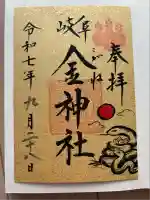 奉拝
岐阜
金神社
こがね
令和七年九月二十八日